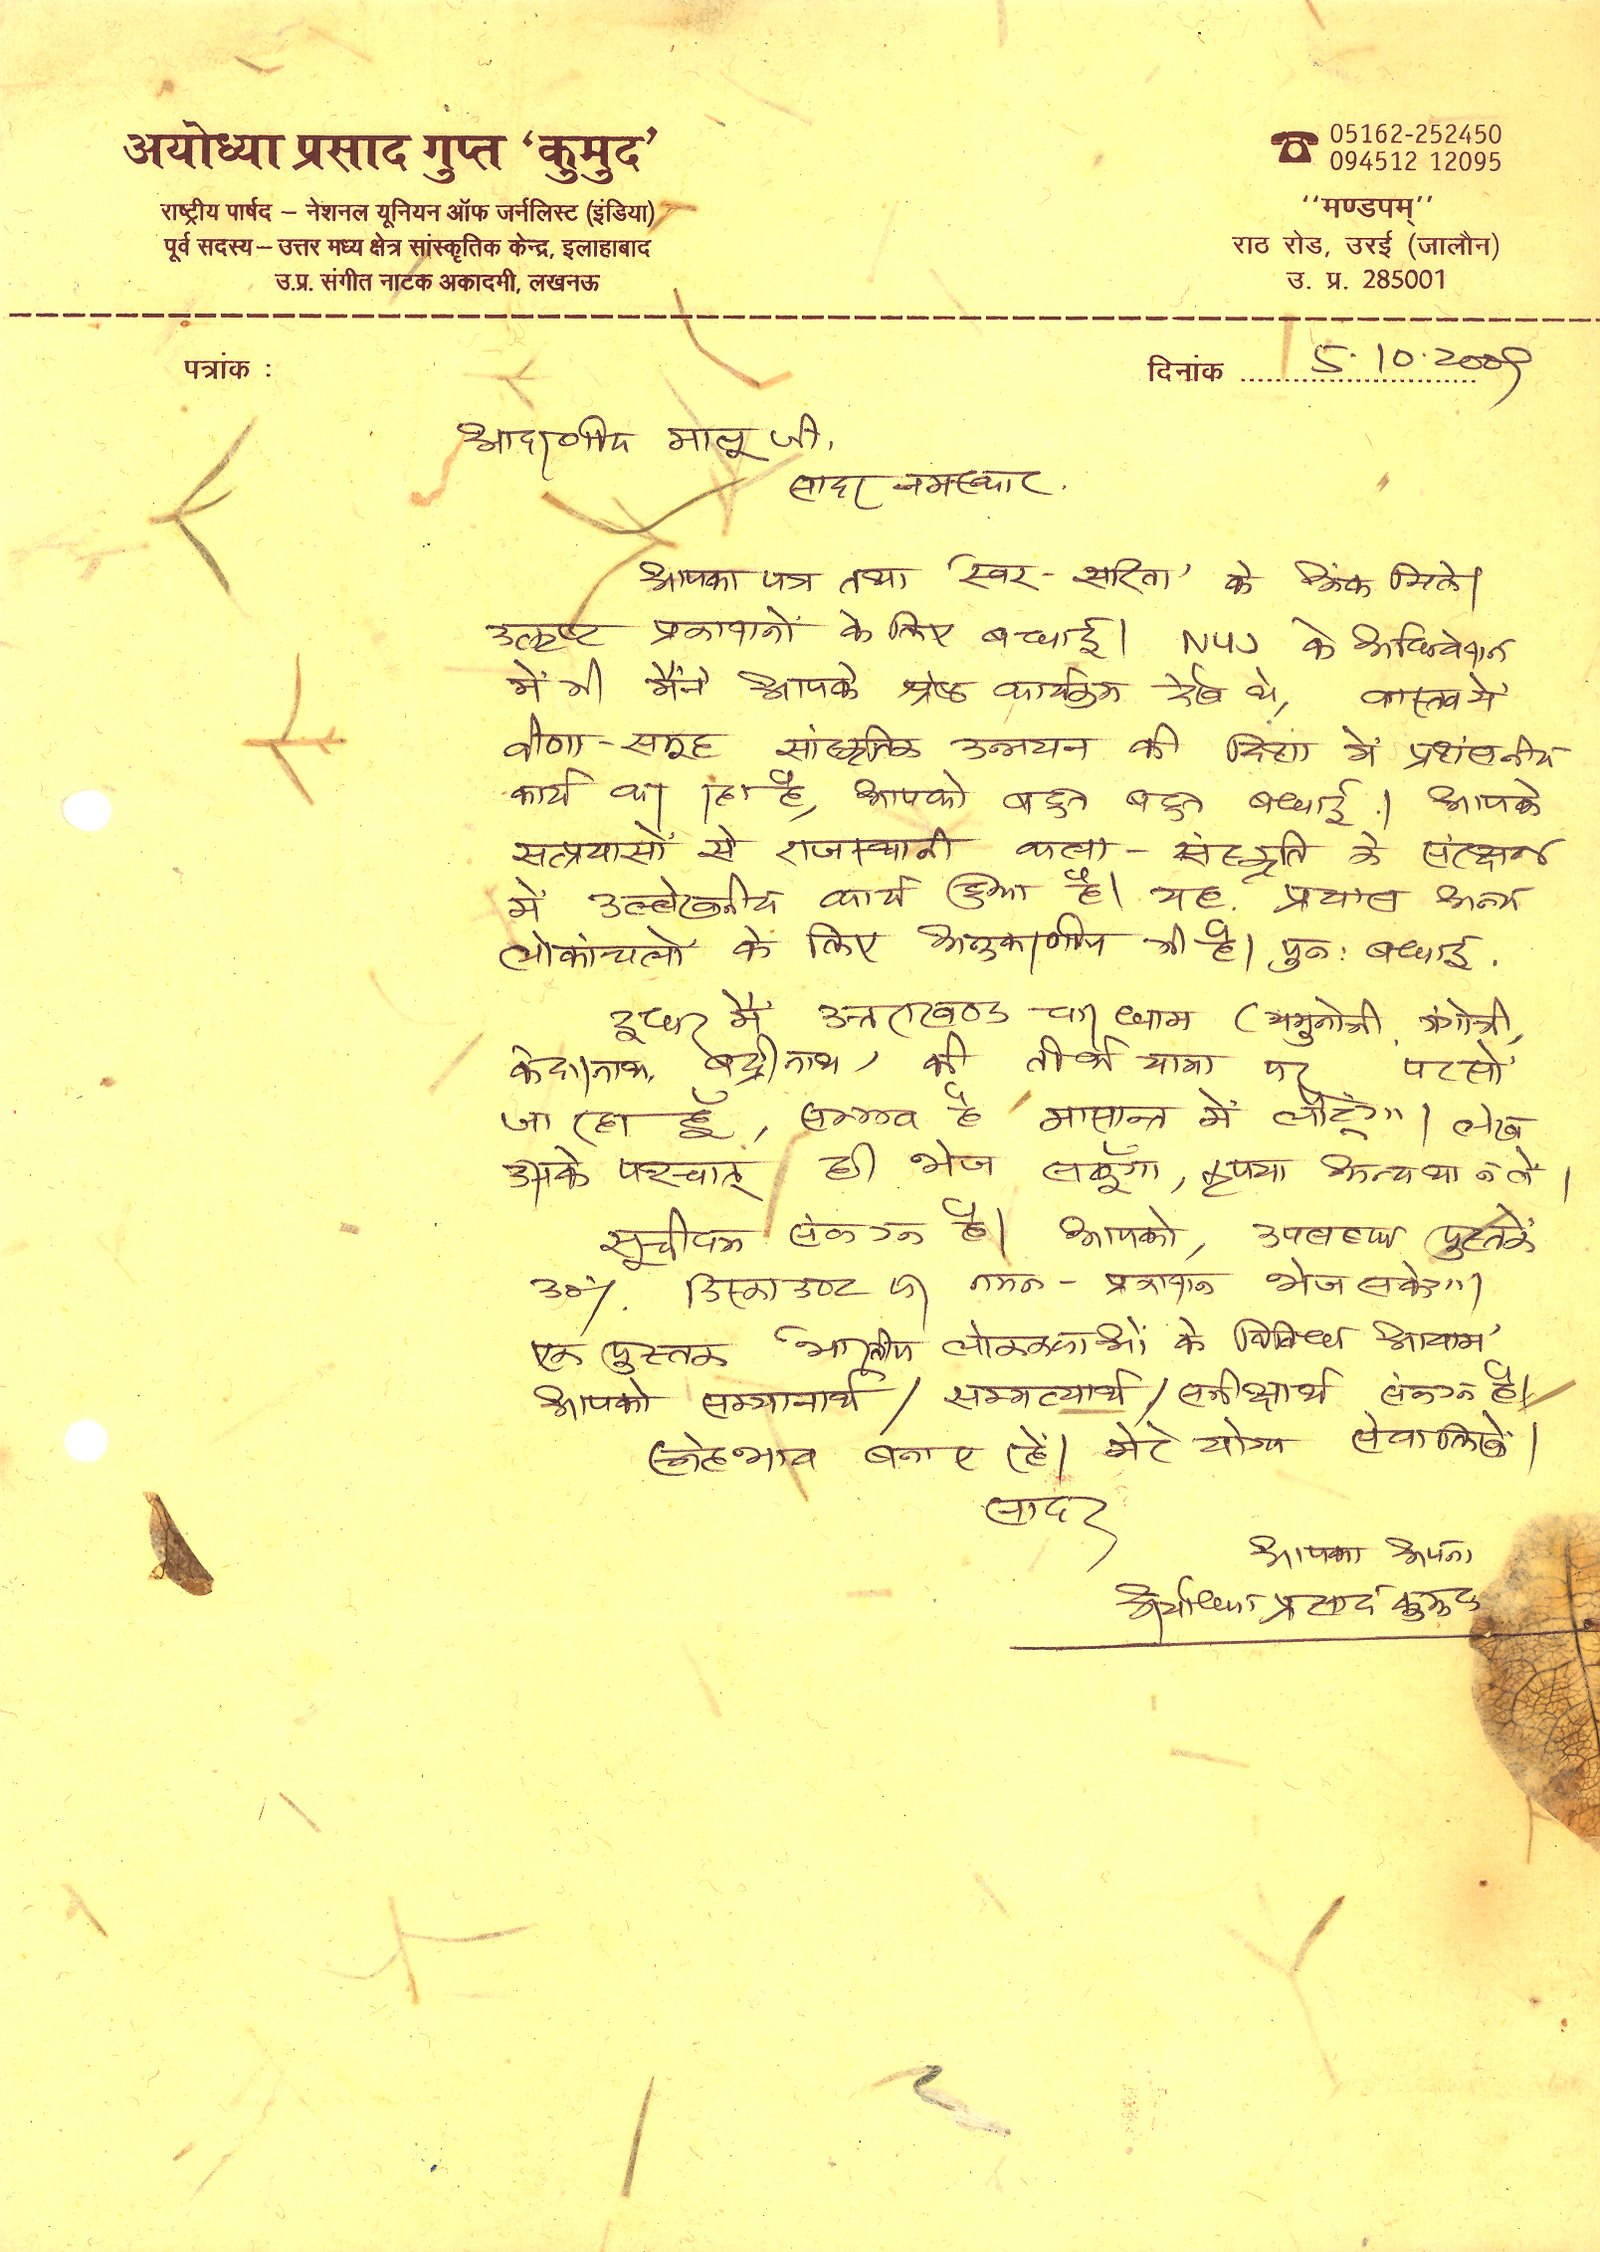 अयोध्या प्रसाद गुप्त ‘कुमुद’
राष्ट्रीय पार्षद – नेशनल यूनियन ऑफ जर्नलिस्ट (इंडिया)
पूर्व सदस्य – उत्तर मध्य क्षेत्र सांस्कृतिक केन्द्र, इलाहाबाद
उ.प्र. संगीत नाटक अकादमी, लखनऊ
05162-252450
094512 12095
‘‘मण्डपम्’’
राठ रोड, उरई (जालौन)
उ. प्र. 285001
पत्रांक :
दिनांक 5.10.2009
आदरणीय मालू जी,
सादर नमस्कार.
आपका पत्र तथा ‘स्वर-सरिता’ के अंक मिले।
उत्कृष्ट प्रकाशनों के लिए बधाई। NUJ के अधिवेशन
में भी मैंने आपके श्रेष्ठ कार्यक्रम देखे थे, वास्तव में
वीणा-समूह सांस्कृतिक उन्नयन की दिशा में प्रशंसनीय
कार्य कर रहा है, आपको बहुत बहुत बधाई। आपके
सत्प्रयासों से राजस्थानी कला-संस्कृति के संरक्षण
में उल्लेखनीय कार्य हुआ है। यह प्रयास अन्य
लोकांचलों के लिए अनुकरणीय भी है। पुनः बधाई.
इधर मैं उत्तराखण्ड चार धाम (यमुनोत्री, गंगोत्री,
केदारनाथ, बद्रीनाथ) की तीर्थ यात्रा पर परसों
जा रहा हूँ, सम्भव है मासान्त में लौटूंगा। लेख
उसके पश्चात् ही भेज सकूँगा, कृपया अन्यथा न लें।
सूचीपत्र संलग्न है। आपको, उपलब्ध पुस्तकें
30%. डिस्काउण्ट पर नमन-प्रकाशन भेज सकेगा।
एक पुस्तक ‘भारतीय लोककथाओं के विविध आयाम’
आपको सम्मानार्थ/सम्मत्यार्थ/समीक्षार्थ संलग्न है।
स्नेहभाव बनाए रहें। मेरे योग्य सेवा लिखें।
सादर
आपका अपना
अयोध्या प्रसाद कुमुद